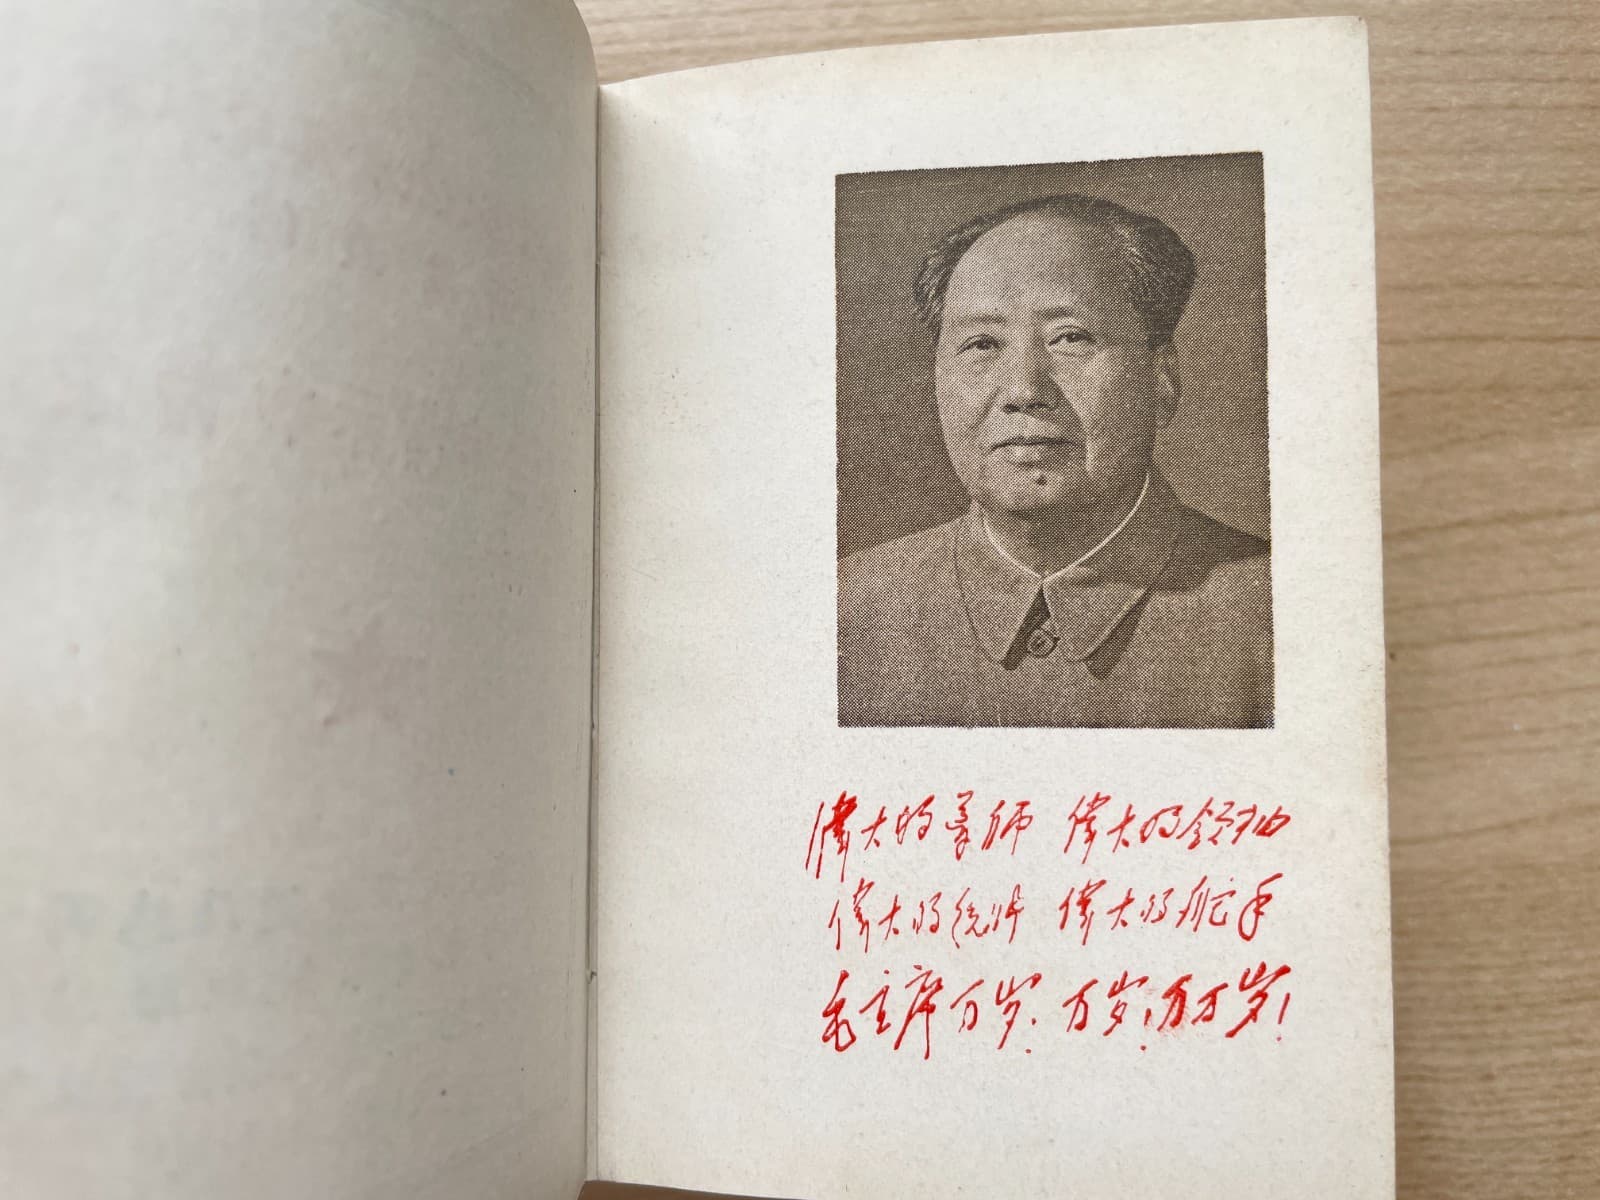 偉大的导师 偉大的领袖
偉大的统帅 偉大的舵手
毛主席万岁! 万岁! 万万岁!